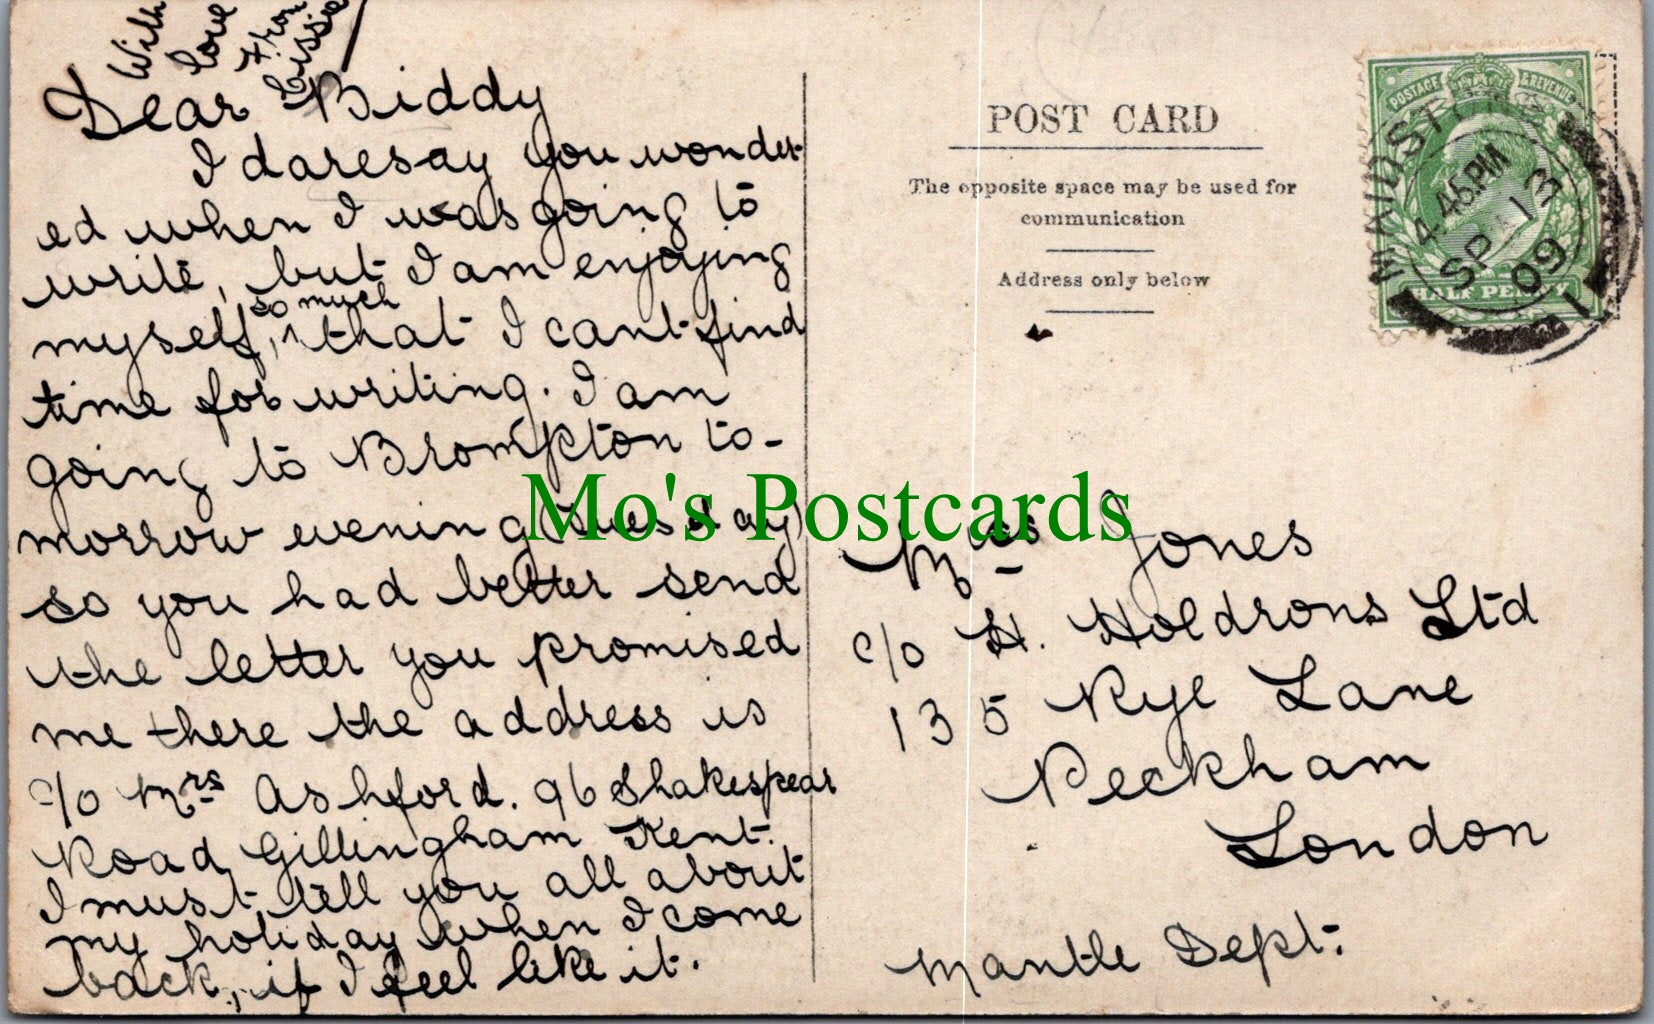 With
love
From
Cissie
Dear Biddy
I daresay you wonder-
ed when I was going to
write, but I am enjoying
myself, so much that I cant find
time for writing. I am
going to Brompton to-
morrow evening (Tuesday)
so you had better send
the letter you promised
me there the address is
c/o Mrs Ashford. 96 Shakespear
Road Gillingham Kent.
I must tell you all about
my holiday when I come
back, if I feel like it.
POST CARD
The opposite space may be used for
communication
Address only below
POSTAGE & REVENUE
HALF PENNY
MAIDSTONE
4 45 PM
SP 13
09
1
Mo's Postcards
Jones
c/o H. Holdrons Ltd
135 Rye Lane
Peckham
London
Mantle Dept.